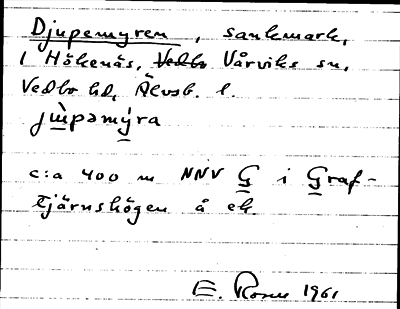 Djupemyren, sankmark,
i Hökenäs, Vedbo Vårviks sn,
Vedbo hd, Älvsb. l.
jùpəmýra
c:a 400 m NNV G i Graf-
tjärnshögen å ek.
E. Rosén 1961